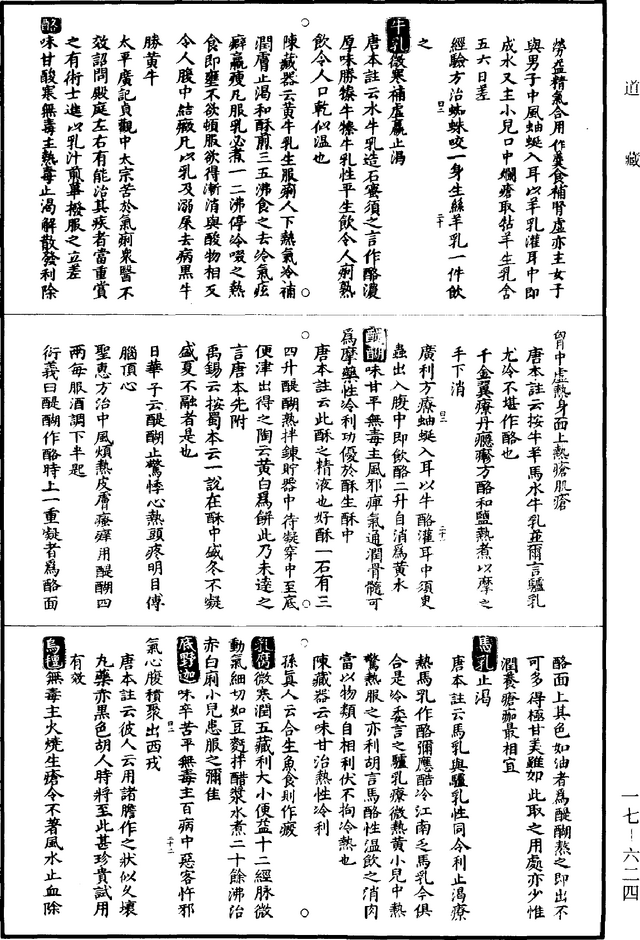 道藏
勞益精氣合用作羹食補腎虛亦主女子
與男子中風蚰蜒入耳以羊乳灌耳中即
成水又主小兒口中爛瘡取牯羊生乳含
五六日差
經驗方治蜘蛛咬一身生絲羊乳一件飲
之
牛乳微寒補虛羸止渴
唐本註云水牛乳造石蜜須之言作酪濃
厚味勝㹀牛㹀牛乳性平生飲令人痢熟
飲令人口乾似温也
陳藏器云黄牛乳生服痢人下熱氣冷補
潤膚止渴和酥煎三五沸食之去冷氣痃
癖羸瘦凡服乳必煮一二沸停冷啜之熱
食即壅不欲頓服欲得漸消與酸物相反
令人腹中結癥凡以乳及溺屎去病黑牛
勝黄牛
太平廣記貞觀中太宗苦於氣痢衆醫不
效詔問殿庭左右有能治其疾者當重賞
之有術士進以乳汁煎蓽撥服之立差
酪味甘酸寒無毒主熱毒止渴解散發利除
胷中虛熱身面上熱瘡肌瘡
唐本註云按牛羊馬水牛乳並爾言驢乳
尤冷不堪作酪也
千金翼療丹癮瘮方酪和鹽熱煮以摩之
手下消
廣利方療蚰蜒入耳以牛酪灌耳中須臾
蟲出入腹中即飲酪二升自消爲黄水
醍醐味甘平無毒主風邪痺氣通潤骨髓可
爲摩藥性冷利功優於酥生酥中
唐本註云此酥之精液也好酥一石有三
四升醍醐熟拌鍊貯器中待凝穿中至底
便津出得之陶云黄白爲餅此乃未達之
言唐本先附
禹錫云按蜀本云一說在酥中盛冬不凝
盛夏不融者是也
日華子云醍醐止驚悸心熱頭疼明目傅
腦頂心
聖惠方治中風煩熱皮膚瘙癢用醍醐四
兩每服酒調下半匙
衍義曰醍醐作酪時上一重凝者爲酪面
酪面上其色如油者爲醍醐熬之即出不
可多得極甘美雖如此取之用處亦少惟
潤養瘡痂最相宜
馬乳止渴
唐本註云馬乳與驢乳性同令利止渴療
熱馬乳作酪彌應酷冷江南乏馬乳今俱
合是冷委言之驢乳療微熱黄小兒中熱
驚熱服之亦利胡言馬酪性温飲之消肉
當以物類自相利伏不拘冷熱也
陳藏器云味甘治熱性冷利
孫真人云合生魚食則作瘕
乳腐微寒潤五藏利大小便益十二經脉微
動氣細切如豆麪拌醋漿水煮二十餘沸治
赤白痢小兒患服之彌佳
底野迦味辛苦平無毒主百病中惡客忤邪
氣心腹積聚出西戎
唐本註云彼人云用諸膽作之狀似久壞
丸藥赤黑色胡人時將至此甚珍貴試用
有效
烏氊無毒主火燒生瘡令不著風水止血除
一七-六二四